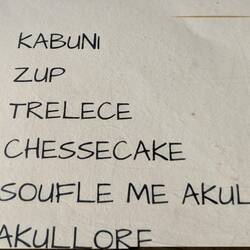 KABUNI
ZUP
TRELECE
CHESSECAKE
SOUFLE ME AKUL
AKULLORE